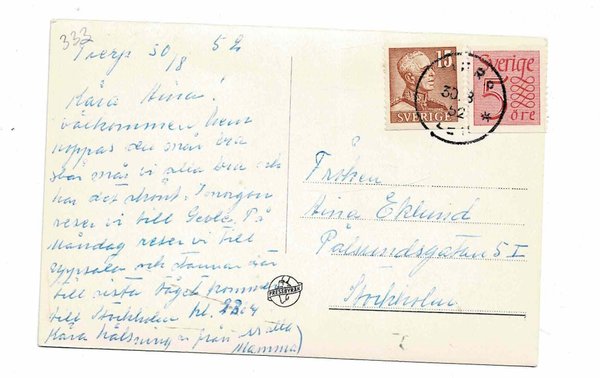 333
Tierp 30/8 52
Kära Aina!
Välkommen hem
hoppas du mår bra
här mår vi alla bra och
har det skönt. I morgon
reser vi till Gevle. På
Måndag reser vi till
Uppsala och stannar där
till sista tåget kommer
till Stockholm kl.
Kära hälsningar från
Mamma
15
SVERIGE
Sverige
5
öre
30 8
52
Fröken
Aina Eklund
Pålsundsgatan 5 I
Stockholm
PRESSBYRÅN